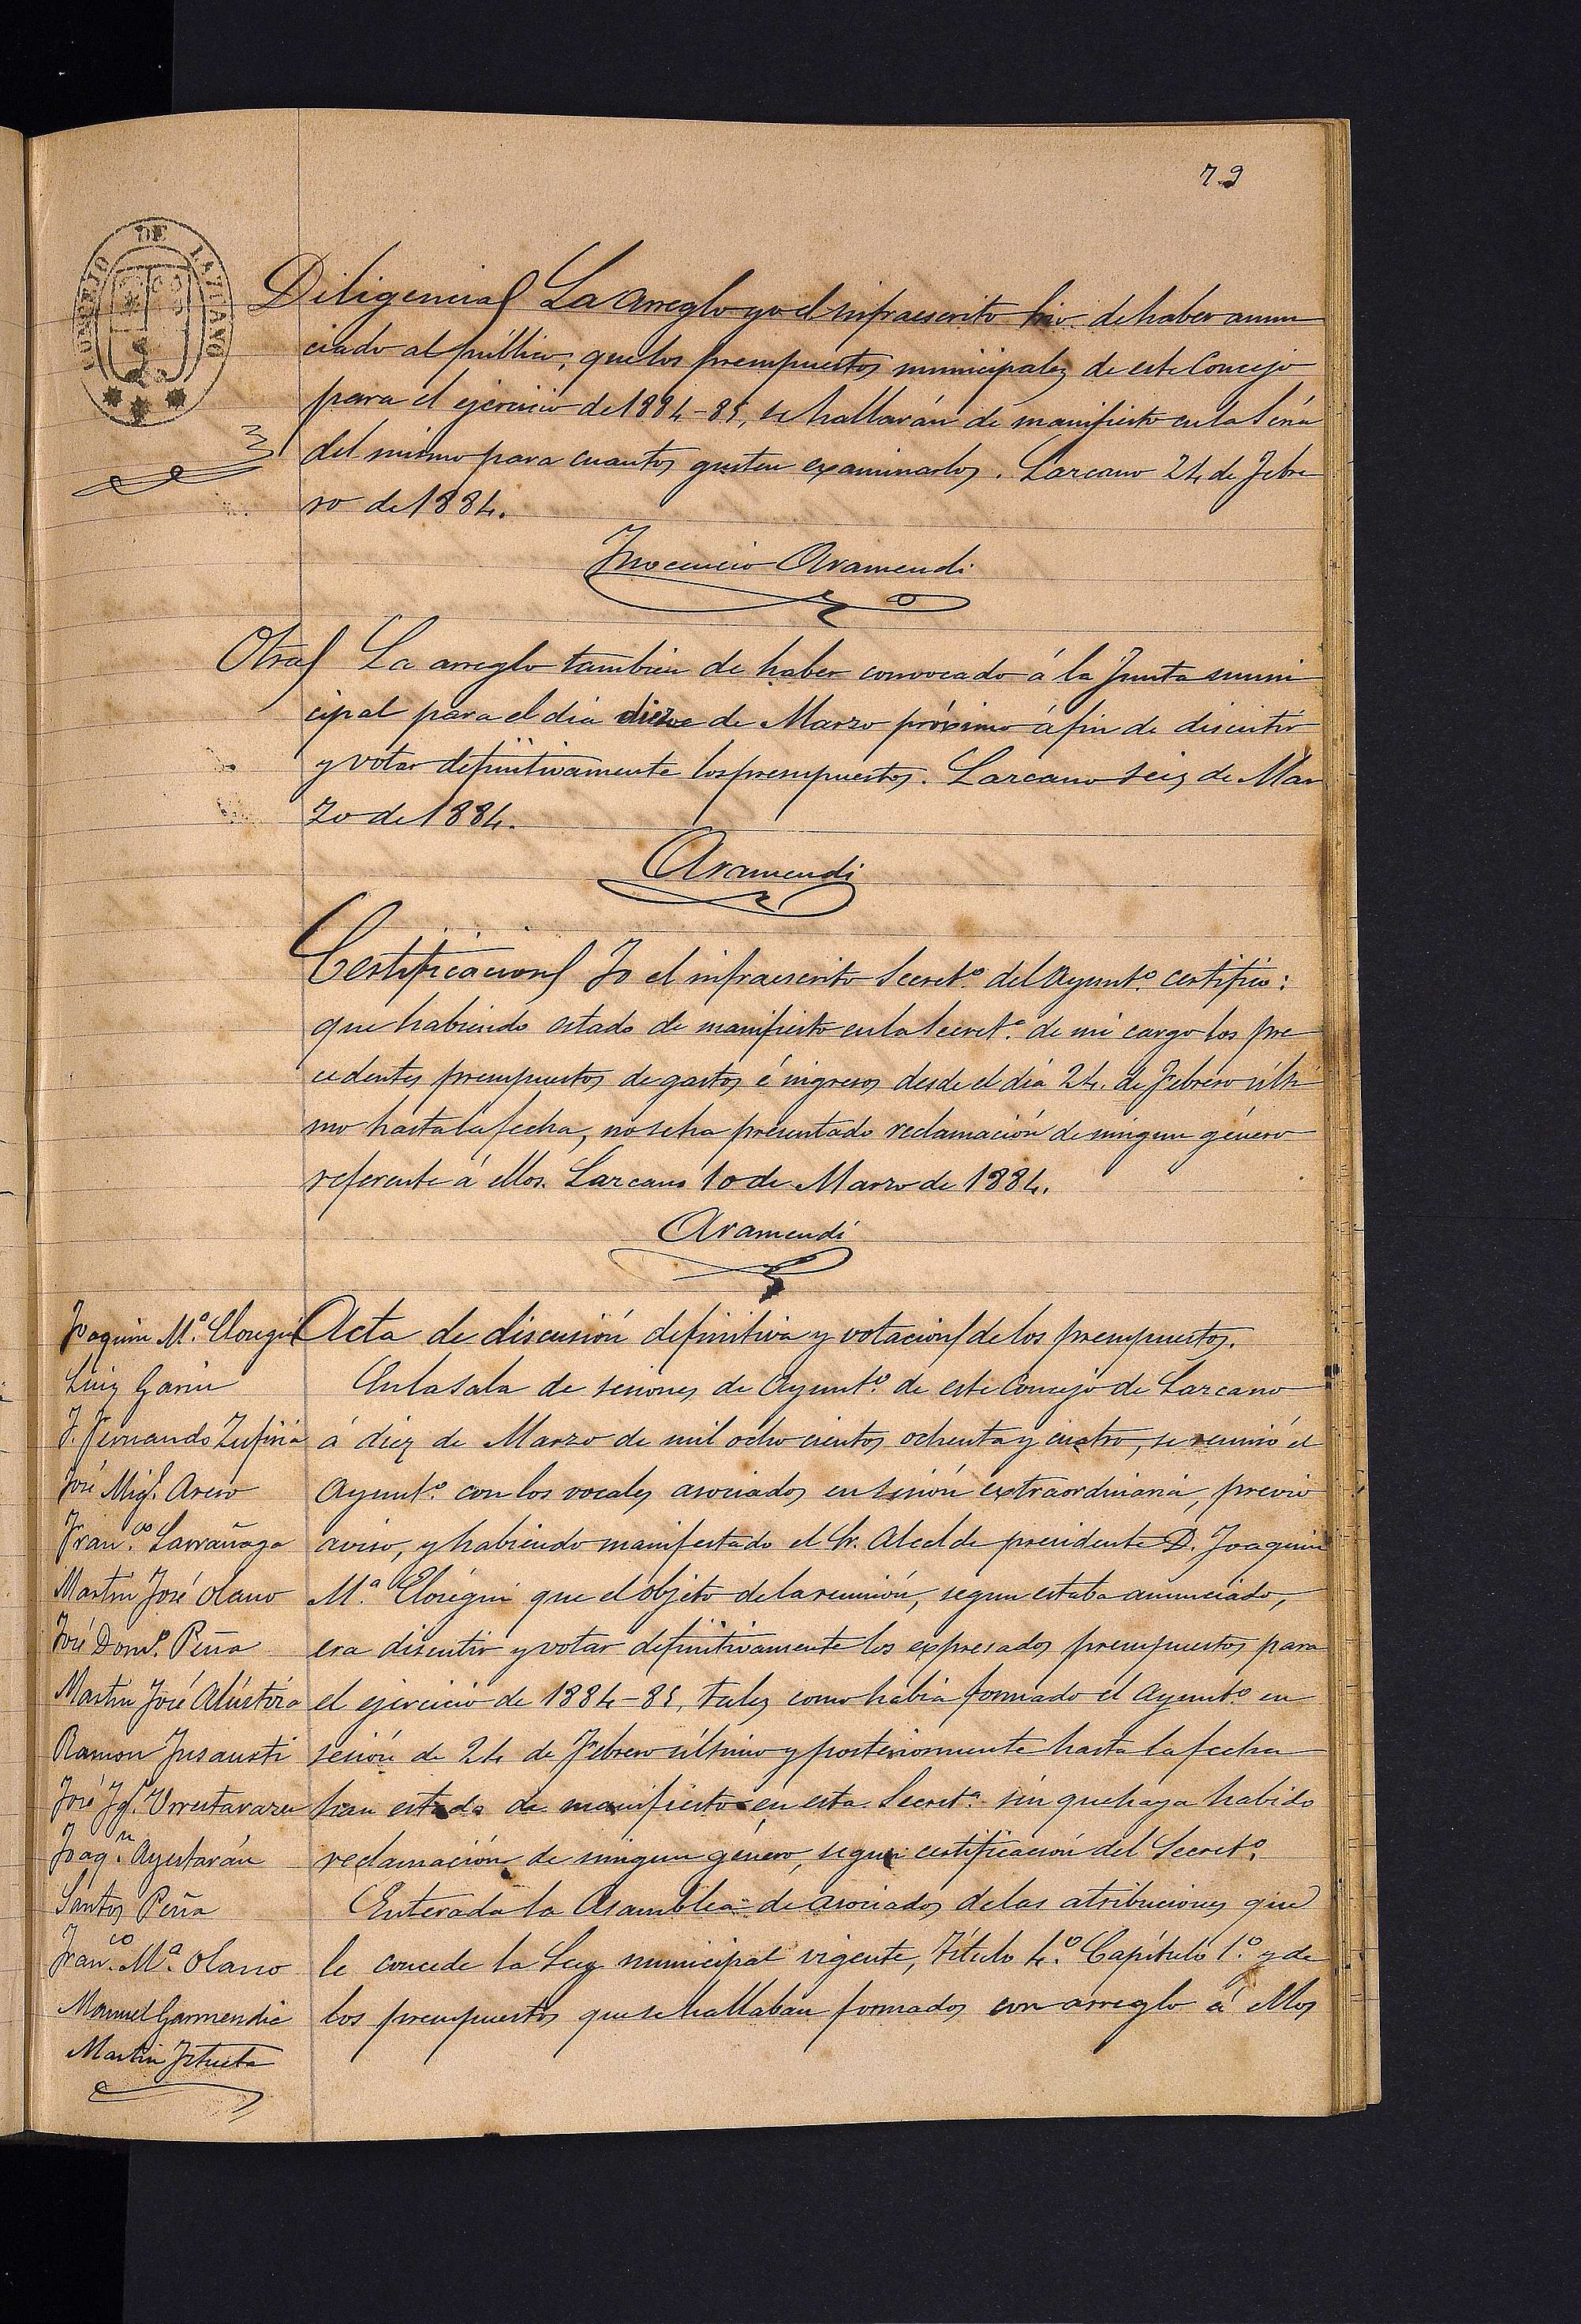 79
CONCEJO DE LAZCANO
Diligencia La arreglo yo el infraescrito Srio. de haber anun
ciado al público, que los presupuestos municipales de este Concejo
para el ejercicio de 1884-85, se hallarán de manifiesto en la Sria
del mismo para cuantos gusten examinarlos. Lazcano 24 de Febre
ro de 1884.
Inocencio Aramendi
Otra La arreglo tambien de haber convocado á la Junta muni
cipal para el dia diez de Marzo próximo á fin de discutir
y votar definitivamente los presupuestos. Lazcano seis de Mar
zo de 1884.
Aramendi
Certificacion Yo el infraescrito Secret.º del Ayunt.º certifico:
que habiendo estado de manifiesto en la Secret.ª de mi cargo los pre
cedentes presupuestos de gastos é ingresos desde el dia 24 de Febrero últi
mo hasta la fecha, no se ha presentado reclamación de ningun género
referente á ellos. Lazcano 10 de Marzo de 1884.
Aramendi
Acta de discusión definitiva y votacion de los presupuestos.
En la Sala de sesiones de Ayunt.º de este Concejo de Lazcano
á diez de Marzo de mil ochocientos ochenta y cuatro, se reunió el
Ayunt.º con los vocales asociados en sesión extraordinaria, previo
aviso, y habiendo manifestado el Sr. Alcalde presidente D. Joaquin
M.ª Eloségui que el objeto de la reunión, segun estaba anunciado,
era discutir y votar definitivamente los expresados presupuestos para
el ejercicio de 1884-85, tales como habia formado el Ayunt.º en
sesión de 24 de Febrero último y posteriormente hasta la fecha
han estado de manifiesto en esta Secret.ª sin que haya habido
reclamación de ningun género, segun certificación del Secret.º
Enterada la Asamblea de asociados de las atribuciones que
le concede la Ley municipal vigente, Título 4.º Capítulo 1.º y de
los presupuestos que se hallaban formados con arreglo á ellos
Joaquin M.ª Elosegui
Luis Garin
J. Fernando Zufiria
José Mig.l Areso
Fran.co Larrañaga
Martin José Olano
José Dom.o Peña
Martin José Alústiza
Ramon Insausti
José Ig.o Urrestarazu
Joaq.n Ayestarán
Santos Peña
Fran.co M.ª Olano
Manuel Garmendia
Martin Iztueta